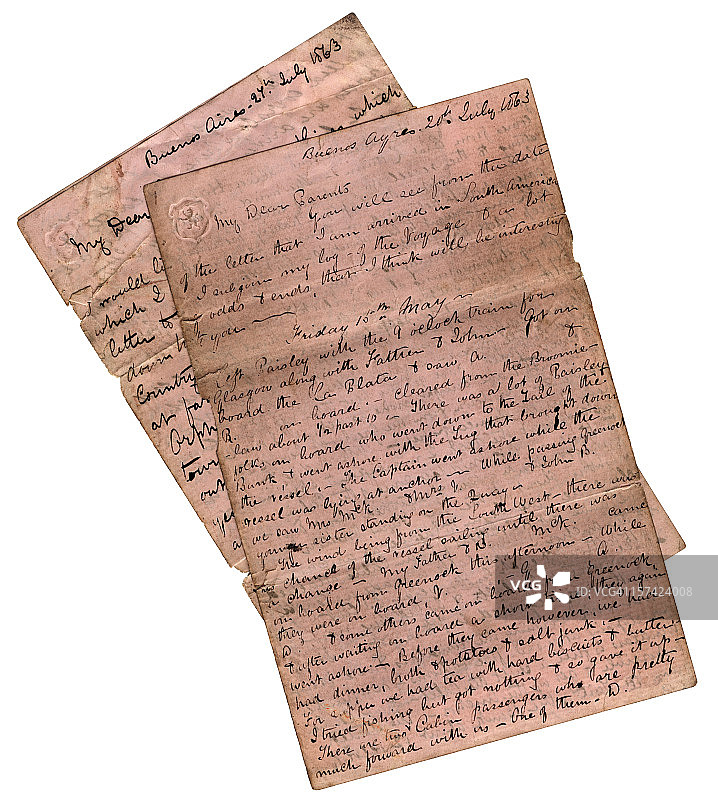 Buenos Aires. 27th July 1863
which
My Dear
I would
which I
letter &
down
Country
at
Orph
town
out
Buenos Ayres. 20th July, 1863
My Dear Parents
You will see from the date
of the letter that I am arrived in South America
I subjoin my log of the Voyage & a lot
of odds & ends, that I think will be interesting
to you
Friday 15th May
Left Paisley with the 9 oclock train for
Glasgow along with Father & John - Got on
board the La Plata & saw A. &
R. on board. - Cleared from the Broomie-
-law about 1/2 past 10 - There was a lot of Paisley
folks on board who went down to the Tail of the
Bank & went ashore with the Tug that brought down
the vessel. - The Captain went ashore while the
vessel was lying at anchor - While passing Greenock
we saw Mrs McK. & Mrs & John B.
young sister standing on the Quay -
The wind being from the South West - there was
no chance of the vessel sailing until there was
a change - My Father & McK. came
on board from Greenock this afternoon - While
they were on board, A
D. & some others came on board from Greenock,
& after waiting on board a short time they again
went ashore. - Before they came however, we had
had dinner, broth & potatoes & salt junk. -
For supper we had tea with hard biscuits & butter.
I tried fishing but got nothing & so gave it up -
There are two Cabin passengers who are pretty
much forward with us - One of them - D.
VCG
ID: VCG41157424008